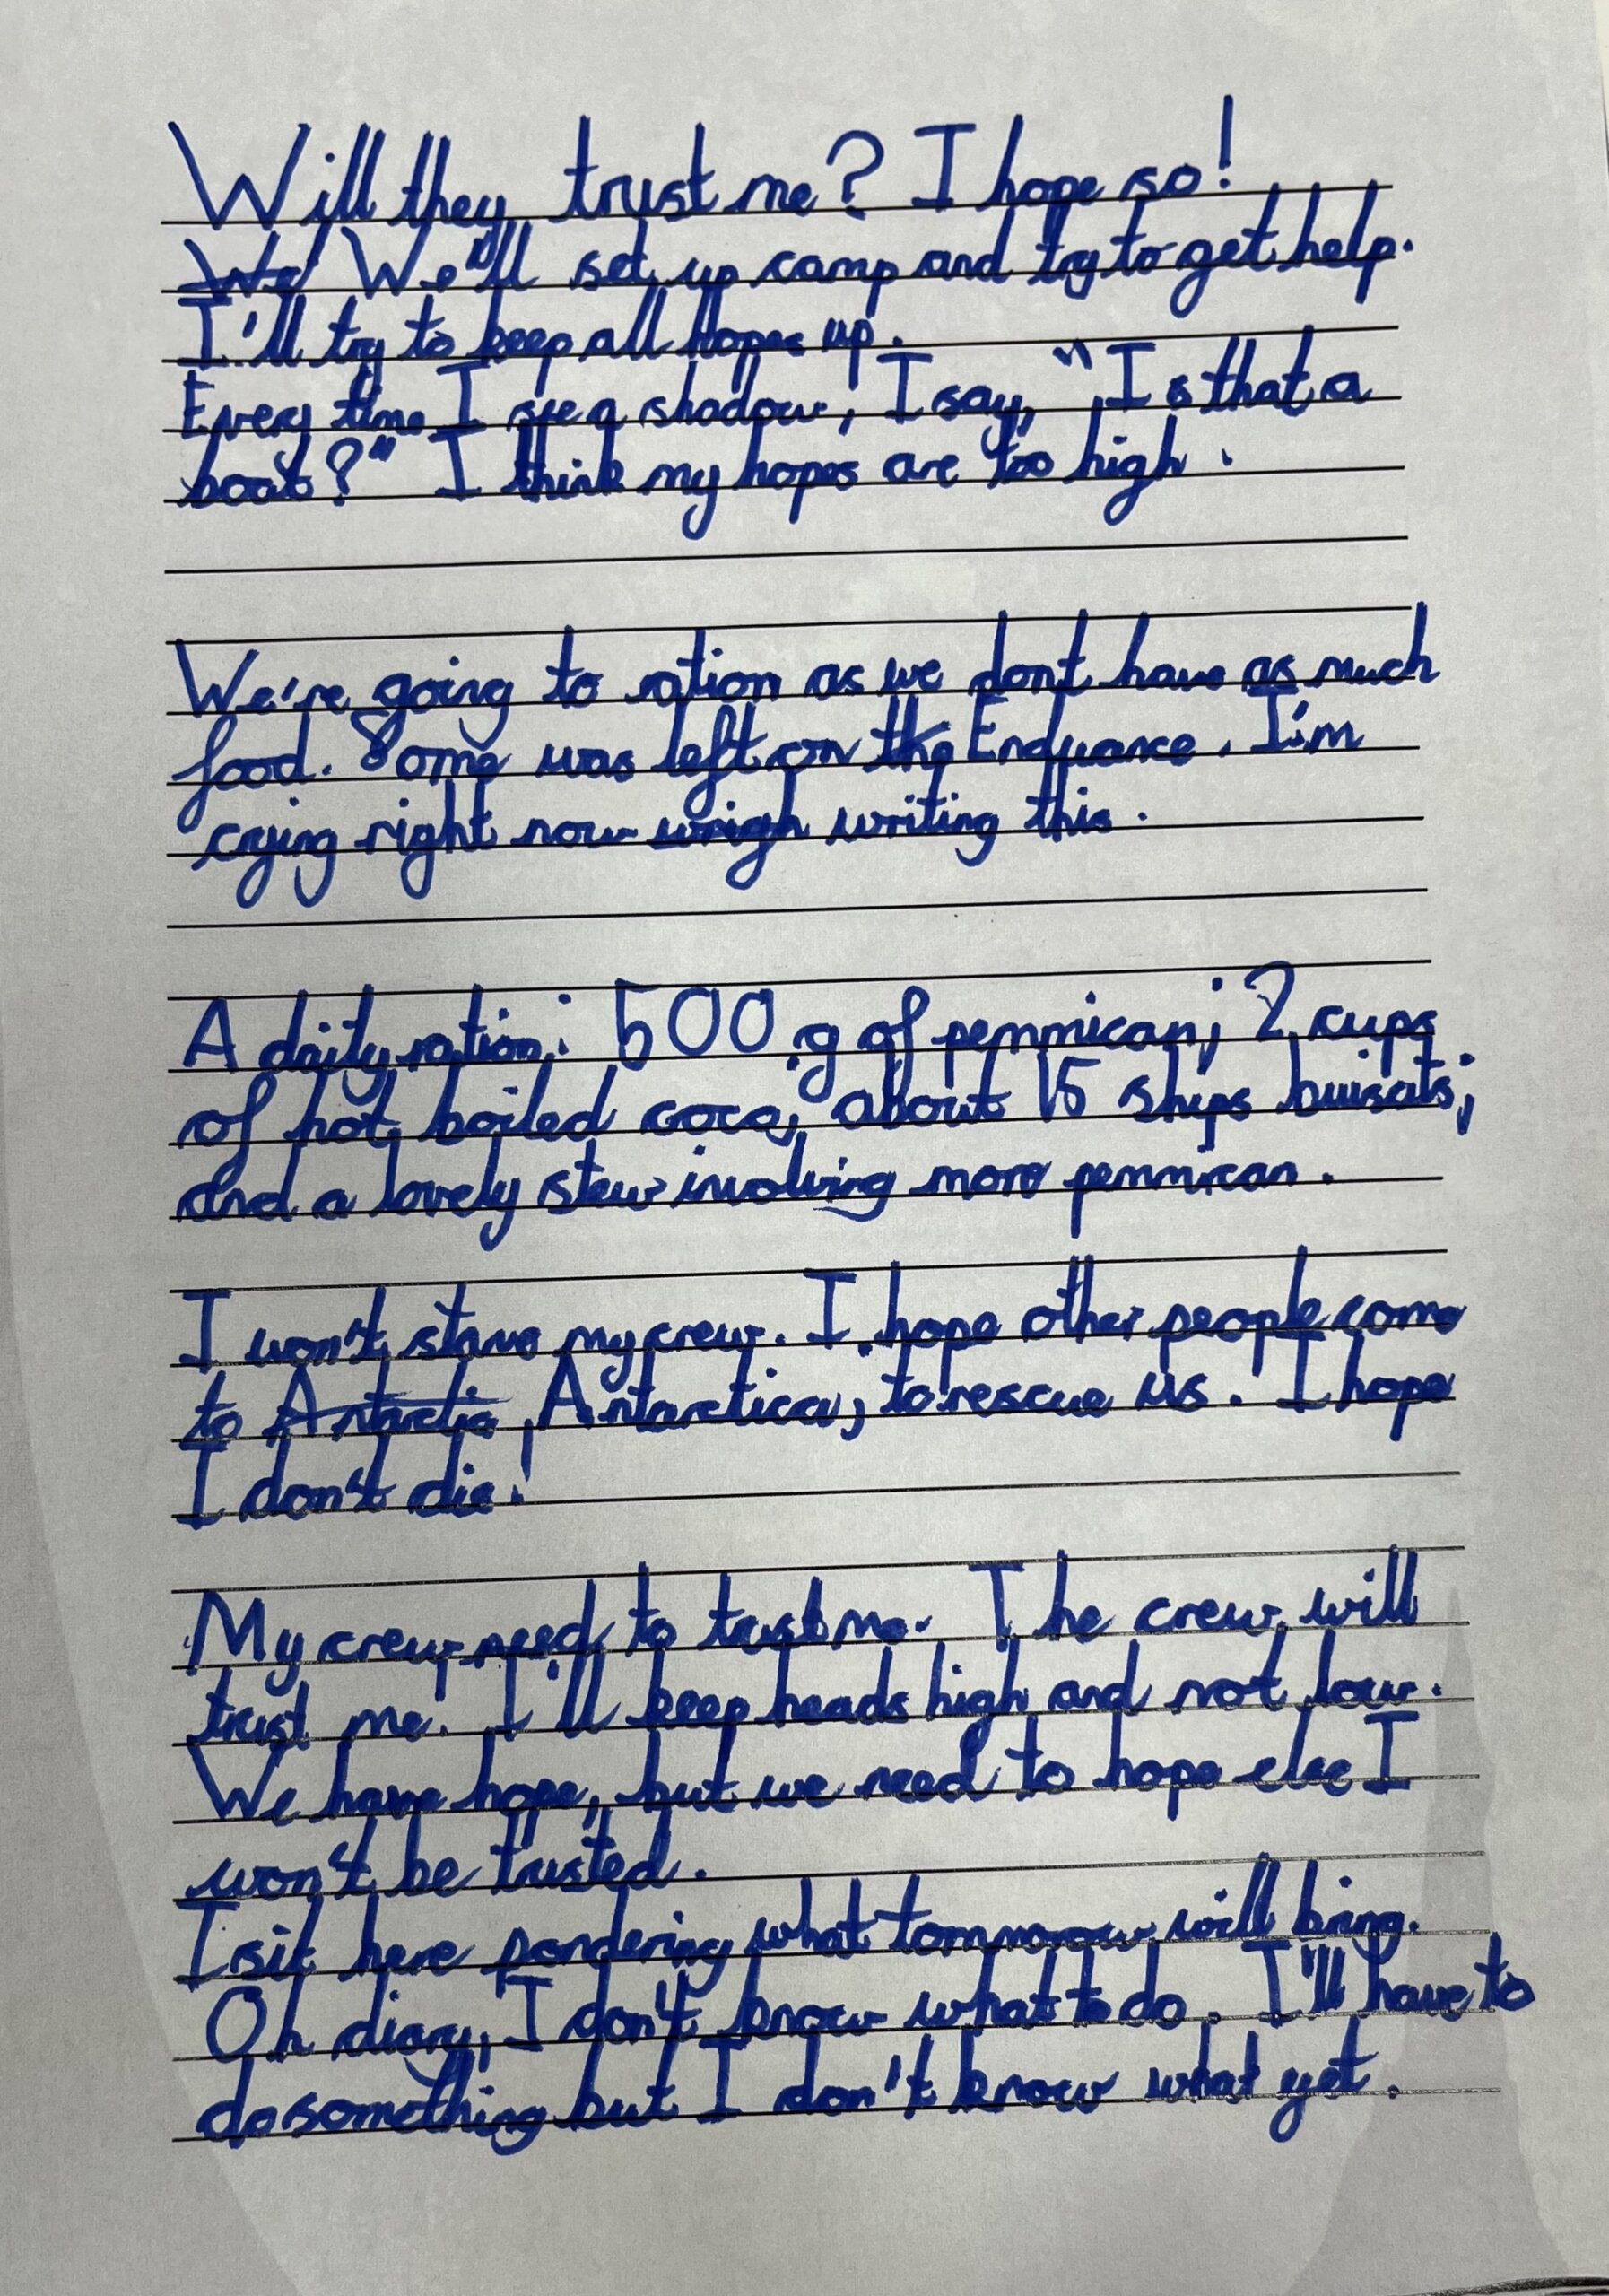 Will they trust me? I hope so!
We' We'll set up camp and try to get help.
I'll try to keep all hopes up.
Every time I see a shadow, I say, "Is that a
boat?" I think my hopes are too high.
We're going to ration as we dont have as much
food. Some was left on the Enduance. I'm
crying right now wrigh writing this.
A daily ration: 500g of pemmican; 2 cups
of hot, boiled coco; about 15 ships buiscits;
and a lovely stew involving more pemmican.
I won't starve my crew. I hope other people come
to Antartic Antarctica, to rescue us. I hope
I don't die!
My crew need to trust me. The crew will
trust me! I'll keep heads high and not low.
We have hope, but we need to hope else I
won't be trusted.
I sit here pondering what tommorow will bring.
Oh diary, I don't know what to do. I'll have to
do something but I don't know what yet.